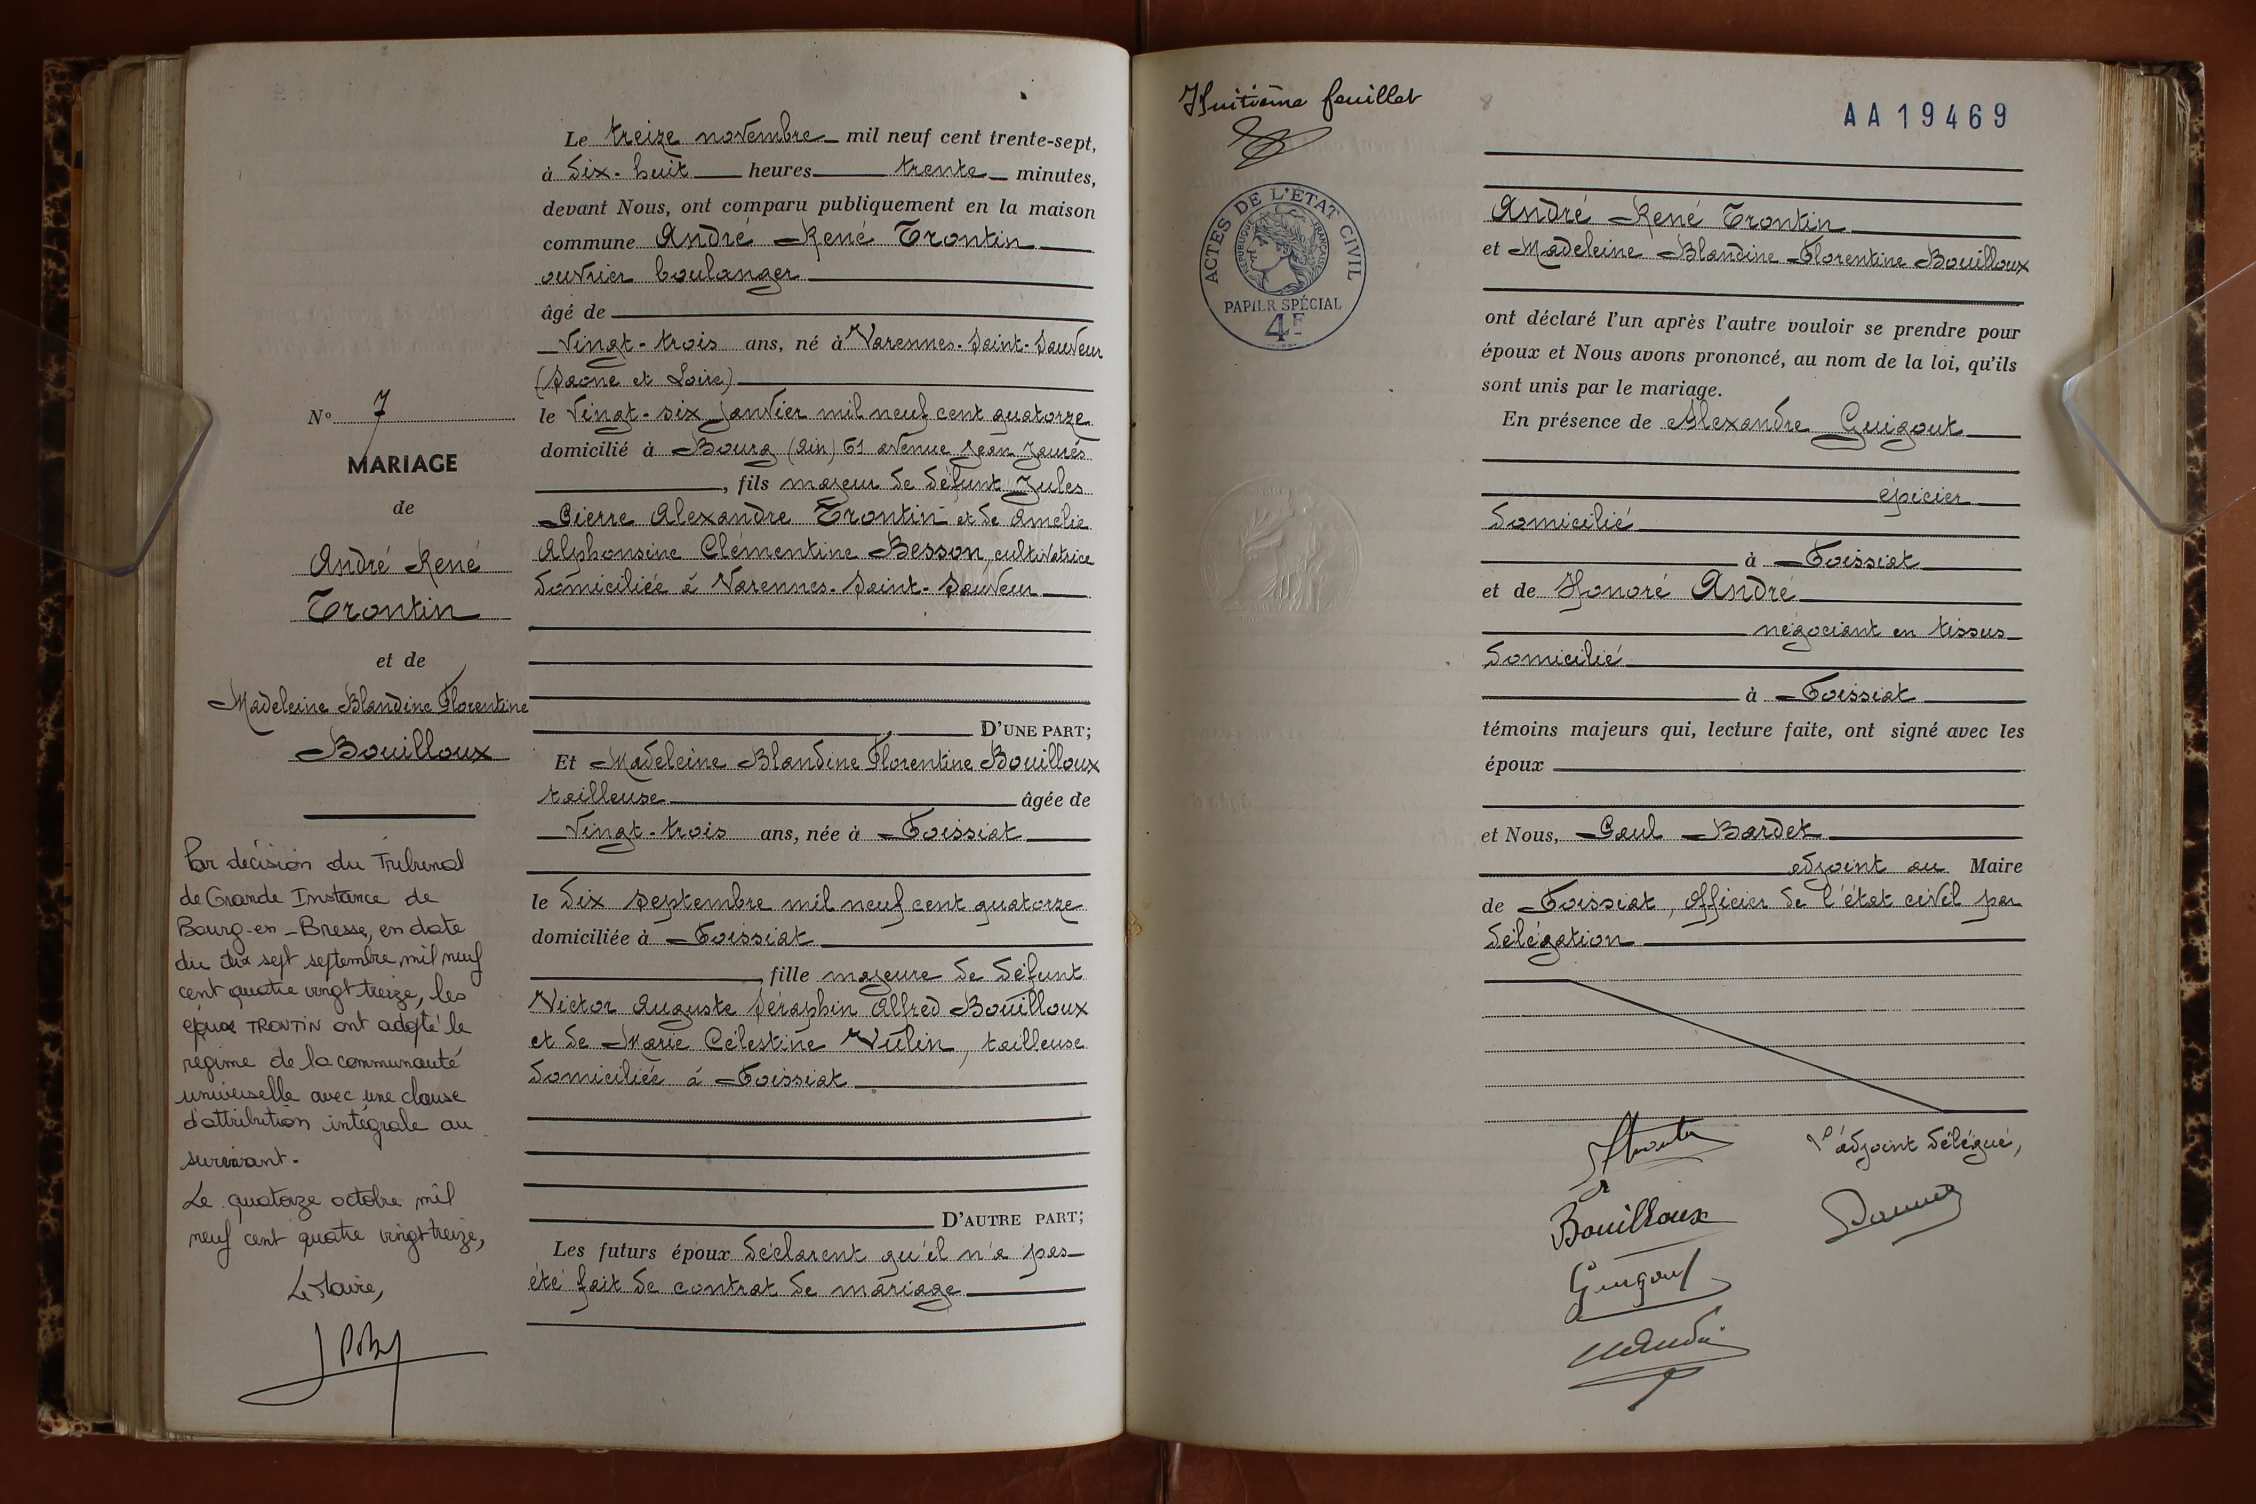 Le treize novembre mil neuf cent trente-sept,
à dix-huit heures trente minutes,
devant Nous, ont comparu publiquement en la maison
commune André René Trontin
ouvrier boulanger
âgé de
vingt-trois ans, né à Varennes-Saint-Sauveur
(Saone et Loire)
le vingt-six janvier mil neuf cent quatorze
domicilié à Bourg (Ain) 61 avenue Jean Jaurés
, fils majeur de défunt Jules
Pierre Alexandre Trontin et de Amélie
Alphonsine Clémentine Besson, cultivatrice
domiciliée à Varennes-Saint-Sauveur
D'UNE PART;
Et Madeleine Blandine Florentine Bouilloux
tailleuse âgée de
vingt-trois ans, née à Foissiat
le dix septembre mil neuf cent quatorze
domiciliée à Foissiat
, fille majeure de défunt
Victor Auguste Séraphin Alfred Bouilloux
et de Marie Célestine Vulin, tailleuse
domiciliée à Foissiat
D'AUTRE PART;
Les futurs époux déclarent qu'il n'a pas
été fait de contrat de mariage
N° 7
MARIAGE
de
André René
Trontin
et de
Madeleine Blandine Florentine
Bouilloux
Par décision du Tribunal
de Grande Instance de
Bourg-en-Bresse, en date
du dix sept septembre mil neuf
cent quatre vingt treize, les
époux TRONTIN ont adopté le
régime de la communauté
universelle avec une clause
d'attribution intégrale au
survivant.
Le quatorze octobre mil
neuf cent quatre vingt treize,
Le Maire,
Huitième feuillet
8
AA19469
ACTES DE L'ETAT CIVIL
REPUBLIQUE FRANÇAISE
PAPIER SPÉCIAL
4F
André René Trontin
et Madeleine Blandine Florentine Bouilloux
ont déclaré l'un après l'autre vouloir se prendre pour
époux et Nous avons prononcé, au nom de la loi, qu'ils
sont unis par le mariage.
En présence de Alexandre Guigout
épicier
domicilié
à Foissiat
et de Honoré André
négociant en tissus
domicilié
à Foissiat
témoins majeurs qui, lecture faite, ont signé avec les
époux
et Nous, Paul Bardet
adjoint au Maire
de Foissiat, officier de l'état civil par
délégation
l'adjoint délégué,
Bouilloux
Guigout